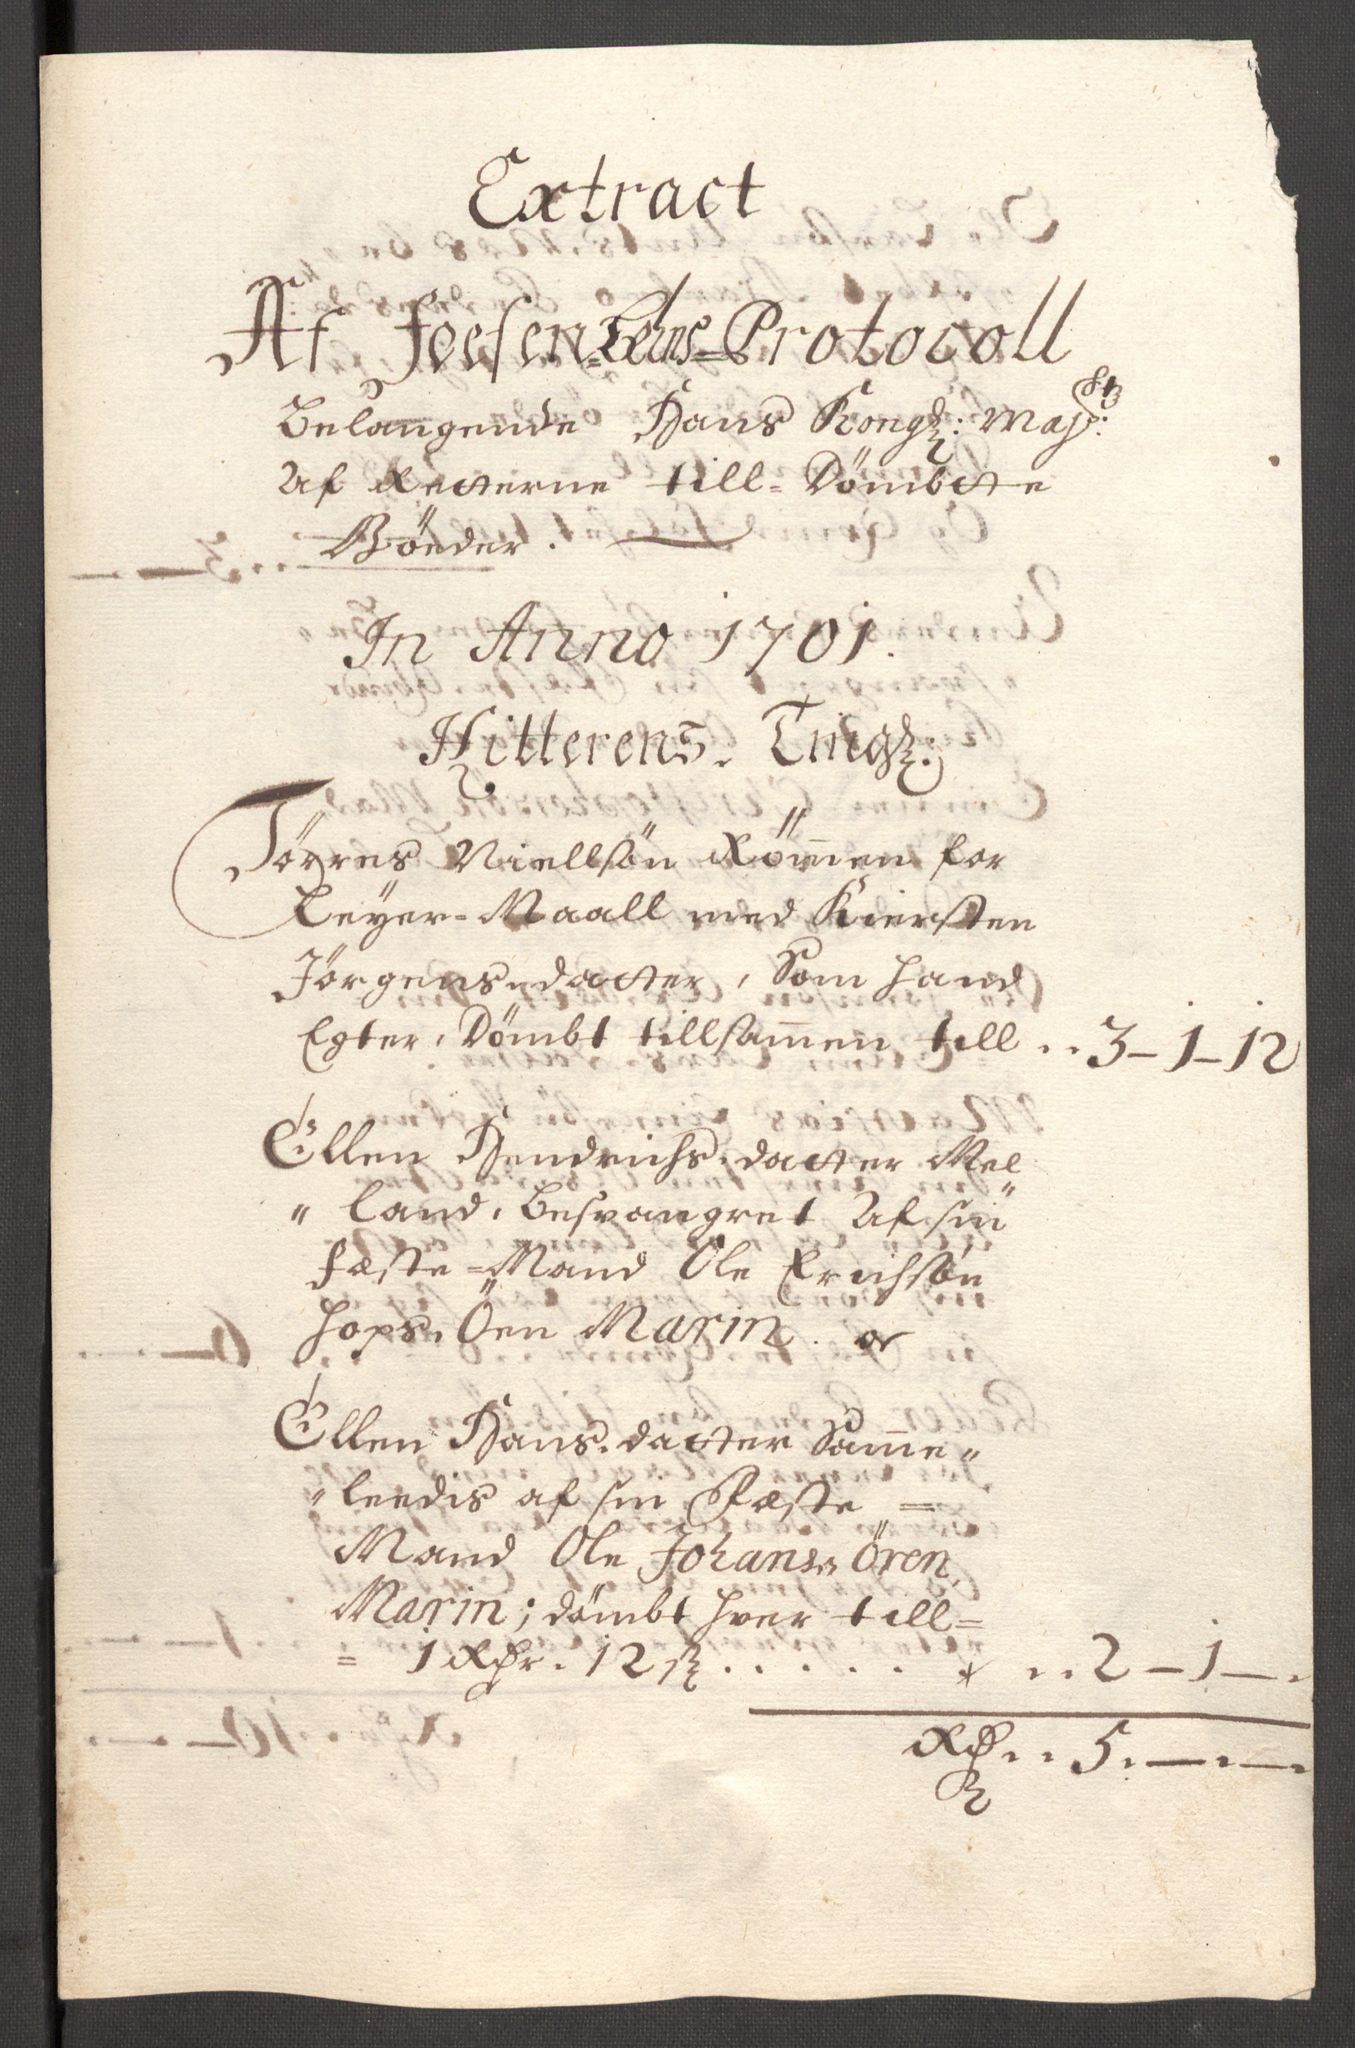 Extract
Af Foesen Lehns Protocoll
Belangende Hans Kongl: Majts:
Af Retterne till=Dömbte
Bøeder.
In Anno 1701.
Hitterens Tingl:
Törres Niellsön Röm̄en for
Leyer=Maall med Kiersten
Jörgens datter, Som hand
Egter, Dömbt tillsam̄en till .. 3 - 1 - 12
Ellen Hendrichs datter Mel
" land, besvangret Af sin
Fæste=Mand Ole Erichsön
Hops Öen Marin. og
Ellen Hans datter Sam̄e "
" leedis af sin Fæste =
Mand Ole Johans: Ören
Marin; dömbt hver till=
= 1 Rdr. 12 ß . . . . . .. 2 - 1 -
Rd .. 5. - -